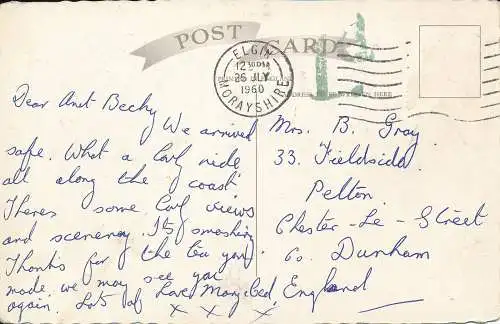 POST CARD
ELGIN
12 30 PM
26 JLY
1960
MORAYSHIRE
Dear Ant Becky
We arrived
safe. What a lovly ride
all along the coast
Theres some lovly views
and scenerey. Its smashing
Thanks for the tea you
made we may see you
again. Lots of Love Mary
x x x
Mrs. B. Gray
33. Fieldside
Pelton.
Chester-Le-Street
Co. Durham
England